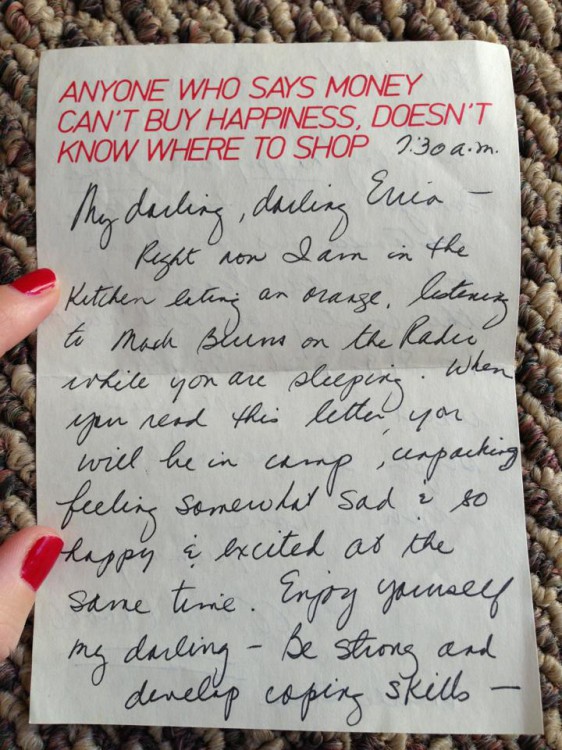 ANYONE WHO SAYS MONEY
CAN'T BUY HAPPINESS, DOESN'T
KNOW WHERE TO SHOP 7:30 a.m.
My darling, darling Erica —
Right now I am in the
Kitchen eating an orange, listening
to Mark Burns on the Radio
while you are sleeping. When
you read this letter, you
will be in camp, unpacking
feeling somewhat sad & so
happy & excited at the
same time. Enjoy yourself
my darling — Be strong and
develop coping skills —